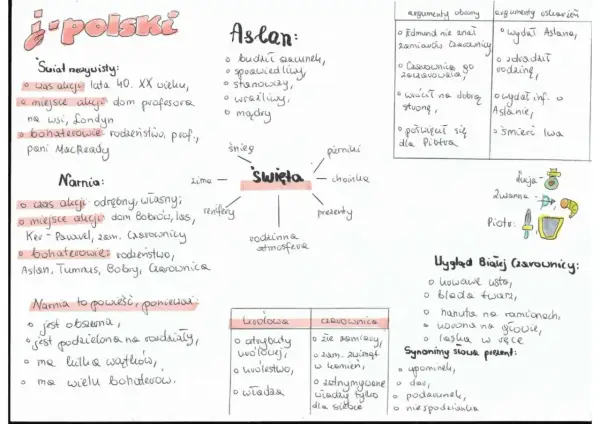 j. polski
Świat rzeczywisty:
czas akcji: lata 40. XX wieku,
miejsce akcji: dom profesora
na wsi, Londyn
bohaterowie: rodzeństwo, prof.,
pani MacReady
Narnia:
czas akcji: odrębny, własny;
miejsce akcji: dom Bobrów, las,
Ker-Paravel, zam. Czarownicy
bohaterowie: rodzeństwo,
Aslan, Tumnus, Bobry, Czarownica
Narnia to powieść, ponieważ:
jest obszerna,
jest podzielona na rozdziały,
ma kilka wątków,
ma wielu bohaterów.
Aslan:
budził szacunek,
sprawiedliwy,
stanowczy,
wrażliwy,
mądry
święta
śnieg
pierniki
zima
choinka
renifery
prezenty
rodzinna
atmosfera
królowa
czarownica
atrybuty
królowej,
królestwo,
władza
złe zamiary,
zam. zwierząt
w kamień,
zatrzymywanie
władzy tylko
dla siebie
argumenty obrony
argumenty oskarżeń
Edmund nie znał
zamiarów Czarownicy
Czarownica go
zaczarowała,
wrócił na dobrą
stronę,
poświęcił się
dla Piotra
wydał Aslana,
zdradził
rodzinę,
wydał inf. o
Aslanie,
śmierć lwa
Łucja -
Zuzanna -
Piotr:
Wygląd Białej Czarownicy:
krwawe usta,
blada twarz,
narzuta na ramionach,
korona na głowie,
laska w ręce
Synonimy słowa prezent:
upominek,
dar,
podarunek,
niespodzianka